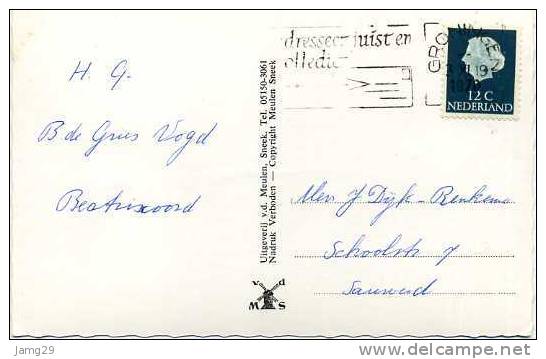 H. G.
B de Grus Vogd
Beatrixoord
Uitgeverij v.d. Meulen, Sneek, Tel. 05150-3061
Nadruk Verboden — Copyright Meulen Sneek
v d
M S
dresseer juist en
olledig
GRONINGEN
12 C
NEDERLAND
Mevr J Dijk-Renkema
Schoolstr 7
Sauwerd
jamg29
http://www.delcampe.net